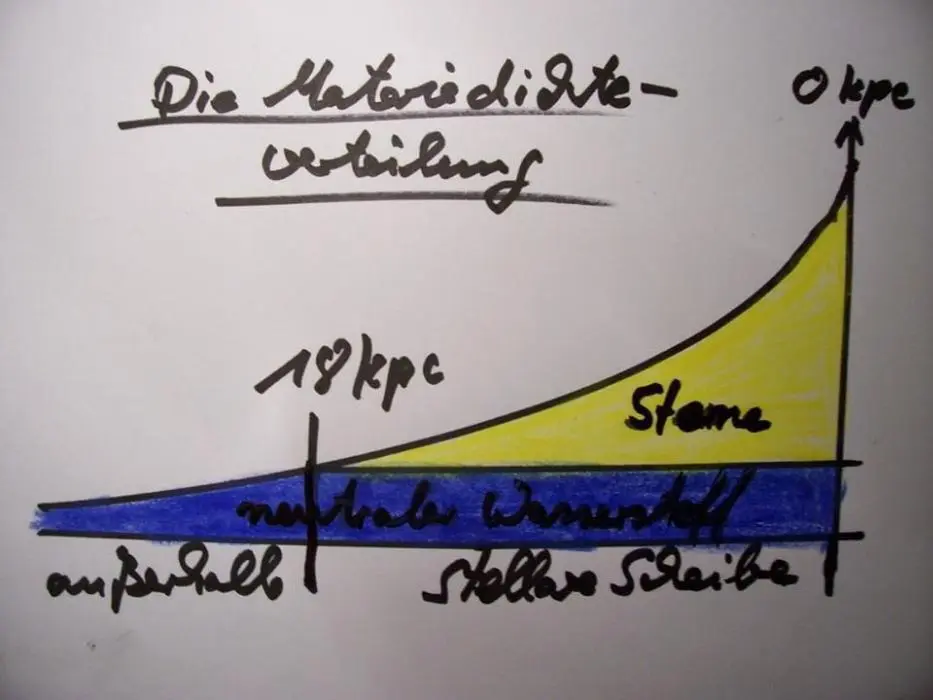 Die Materiedichte-
verteilung
0 kpc
18 kpc
Sterne
neutraler Wasserstoff
außerhalb
stellare Scheibe